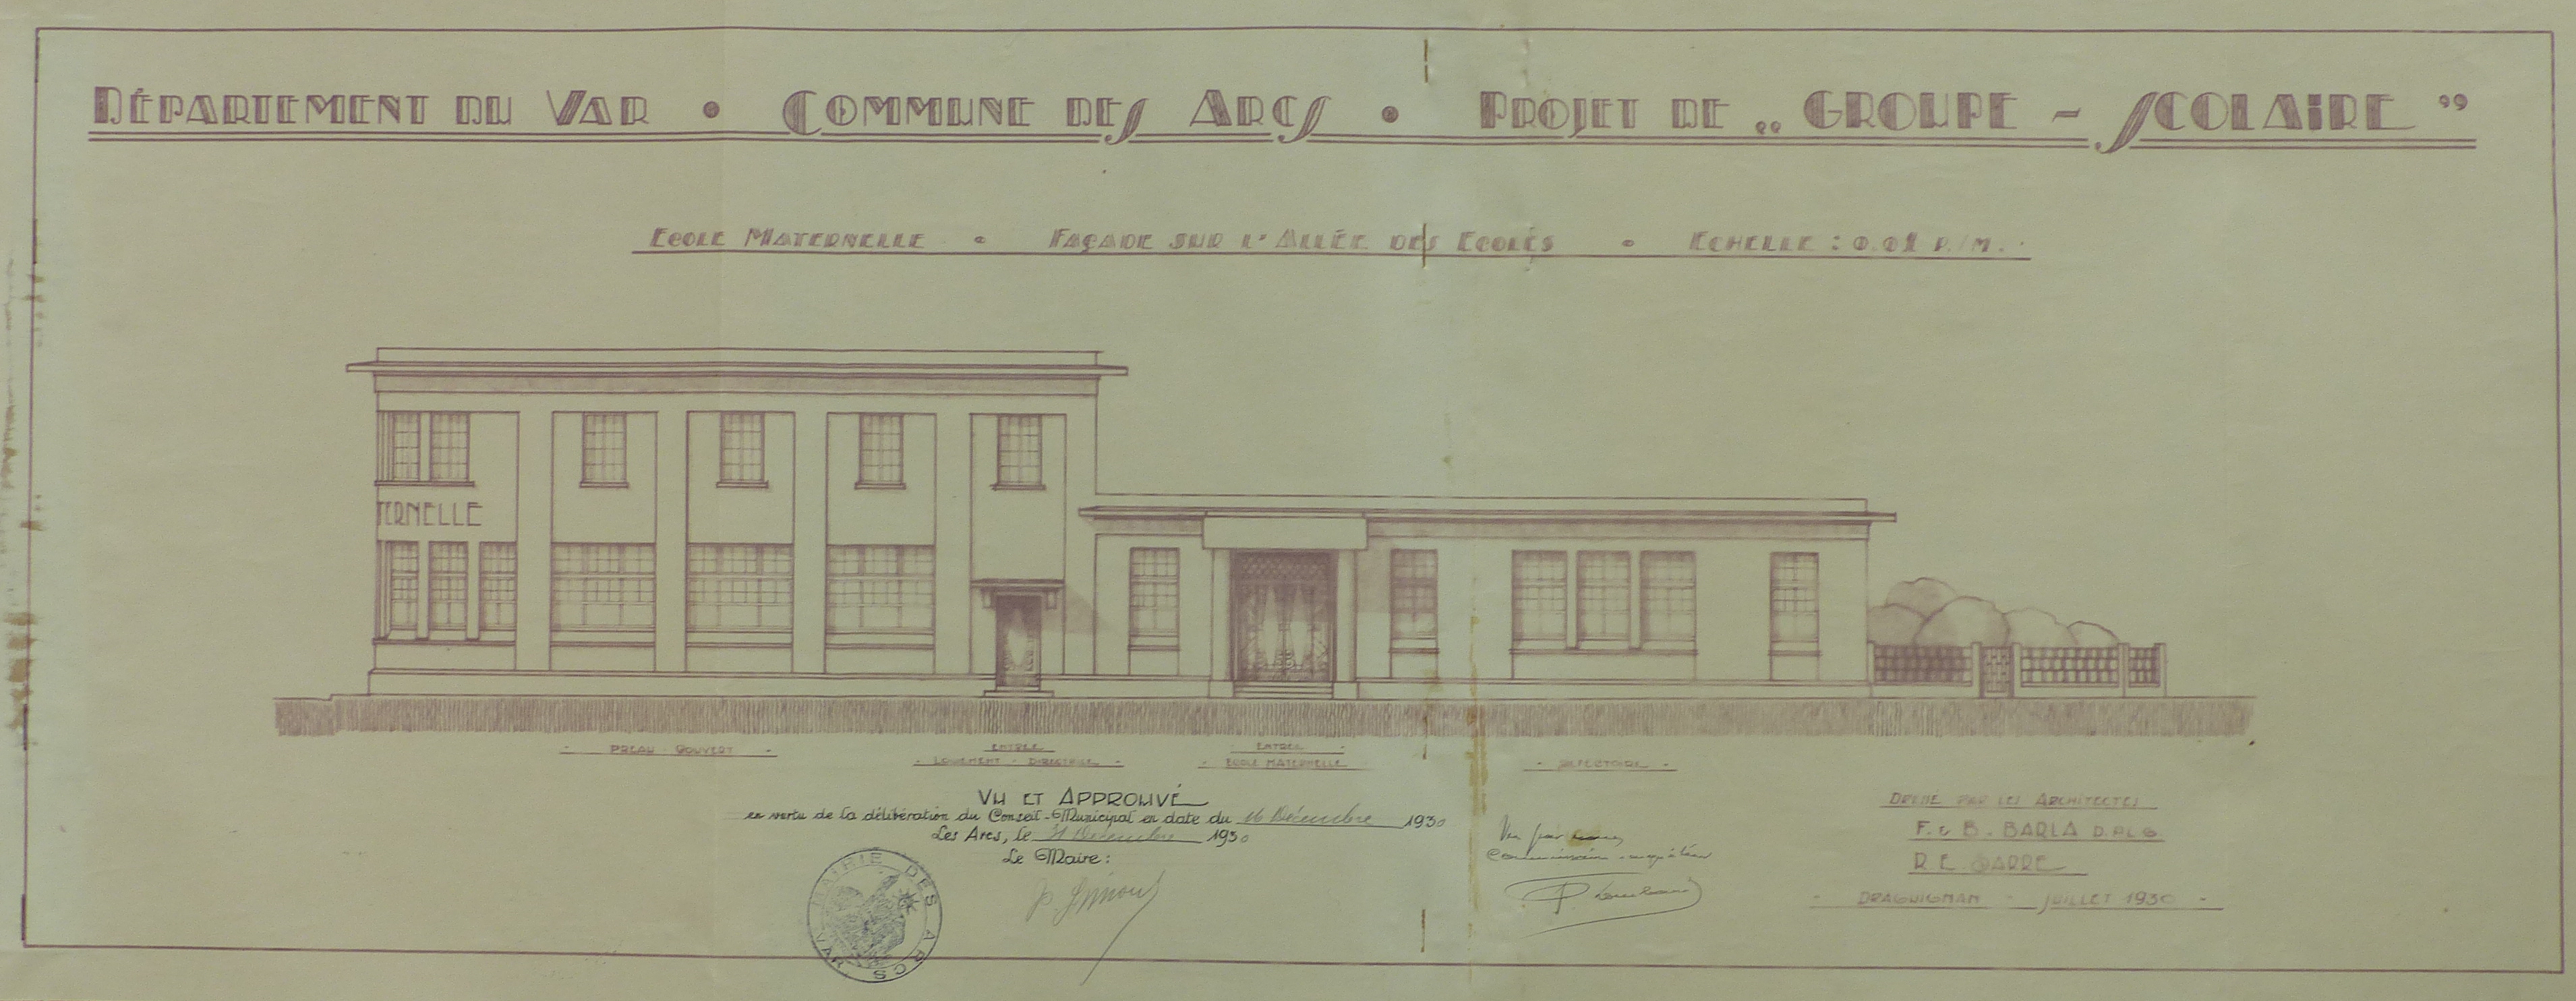 DÉPARTEMENT DU VAR • COMMUNE DES ARCS • PROJET DE „ GROUPE - SCOLAIRE ”
ECOLE MATERNELLE • FAÇADE SUR L'ALLÉE DES ECOLES • ECHELLE : 0.01 P./M.
TERNELLE
PREAU COUVERT
ENTRÉE
LOGEMENT DIRECTRICE
ENTRÉE
ECOLE MATERNELLE
REFECTOIRE
VU ET APPROUVÉ
en vertu de la délibération du Conseil-Municipal en date du 16 Décembre 1930
Les Arcs, le 31 Décembre 1930
Le Maire :
MAIRIE DES ARCS
VAR
Vu par
Commissaire enquêteur
DRESSÉ PAR LES ARCHITECTES
F. & B. BARLA D.P.L.G.
R. E. GARRE
DRAGUIGNAN - JUILLET 1930 -